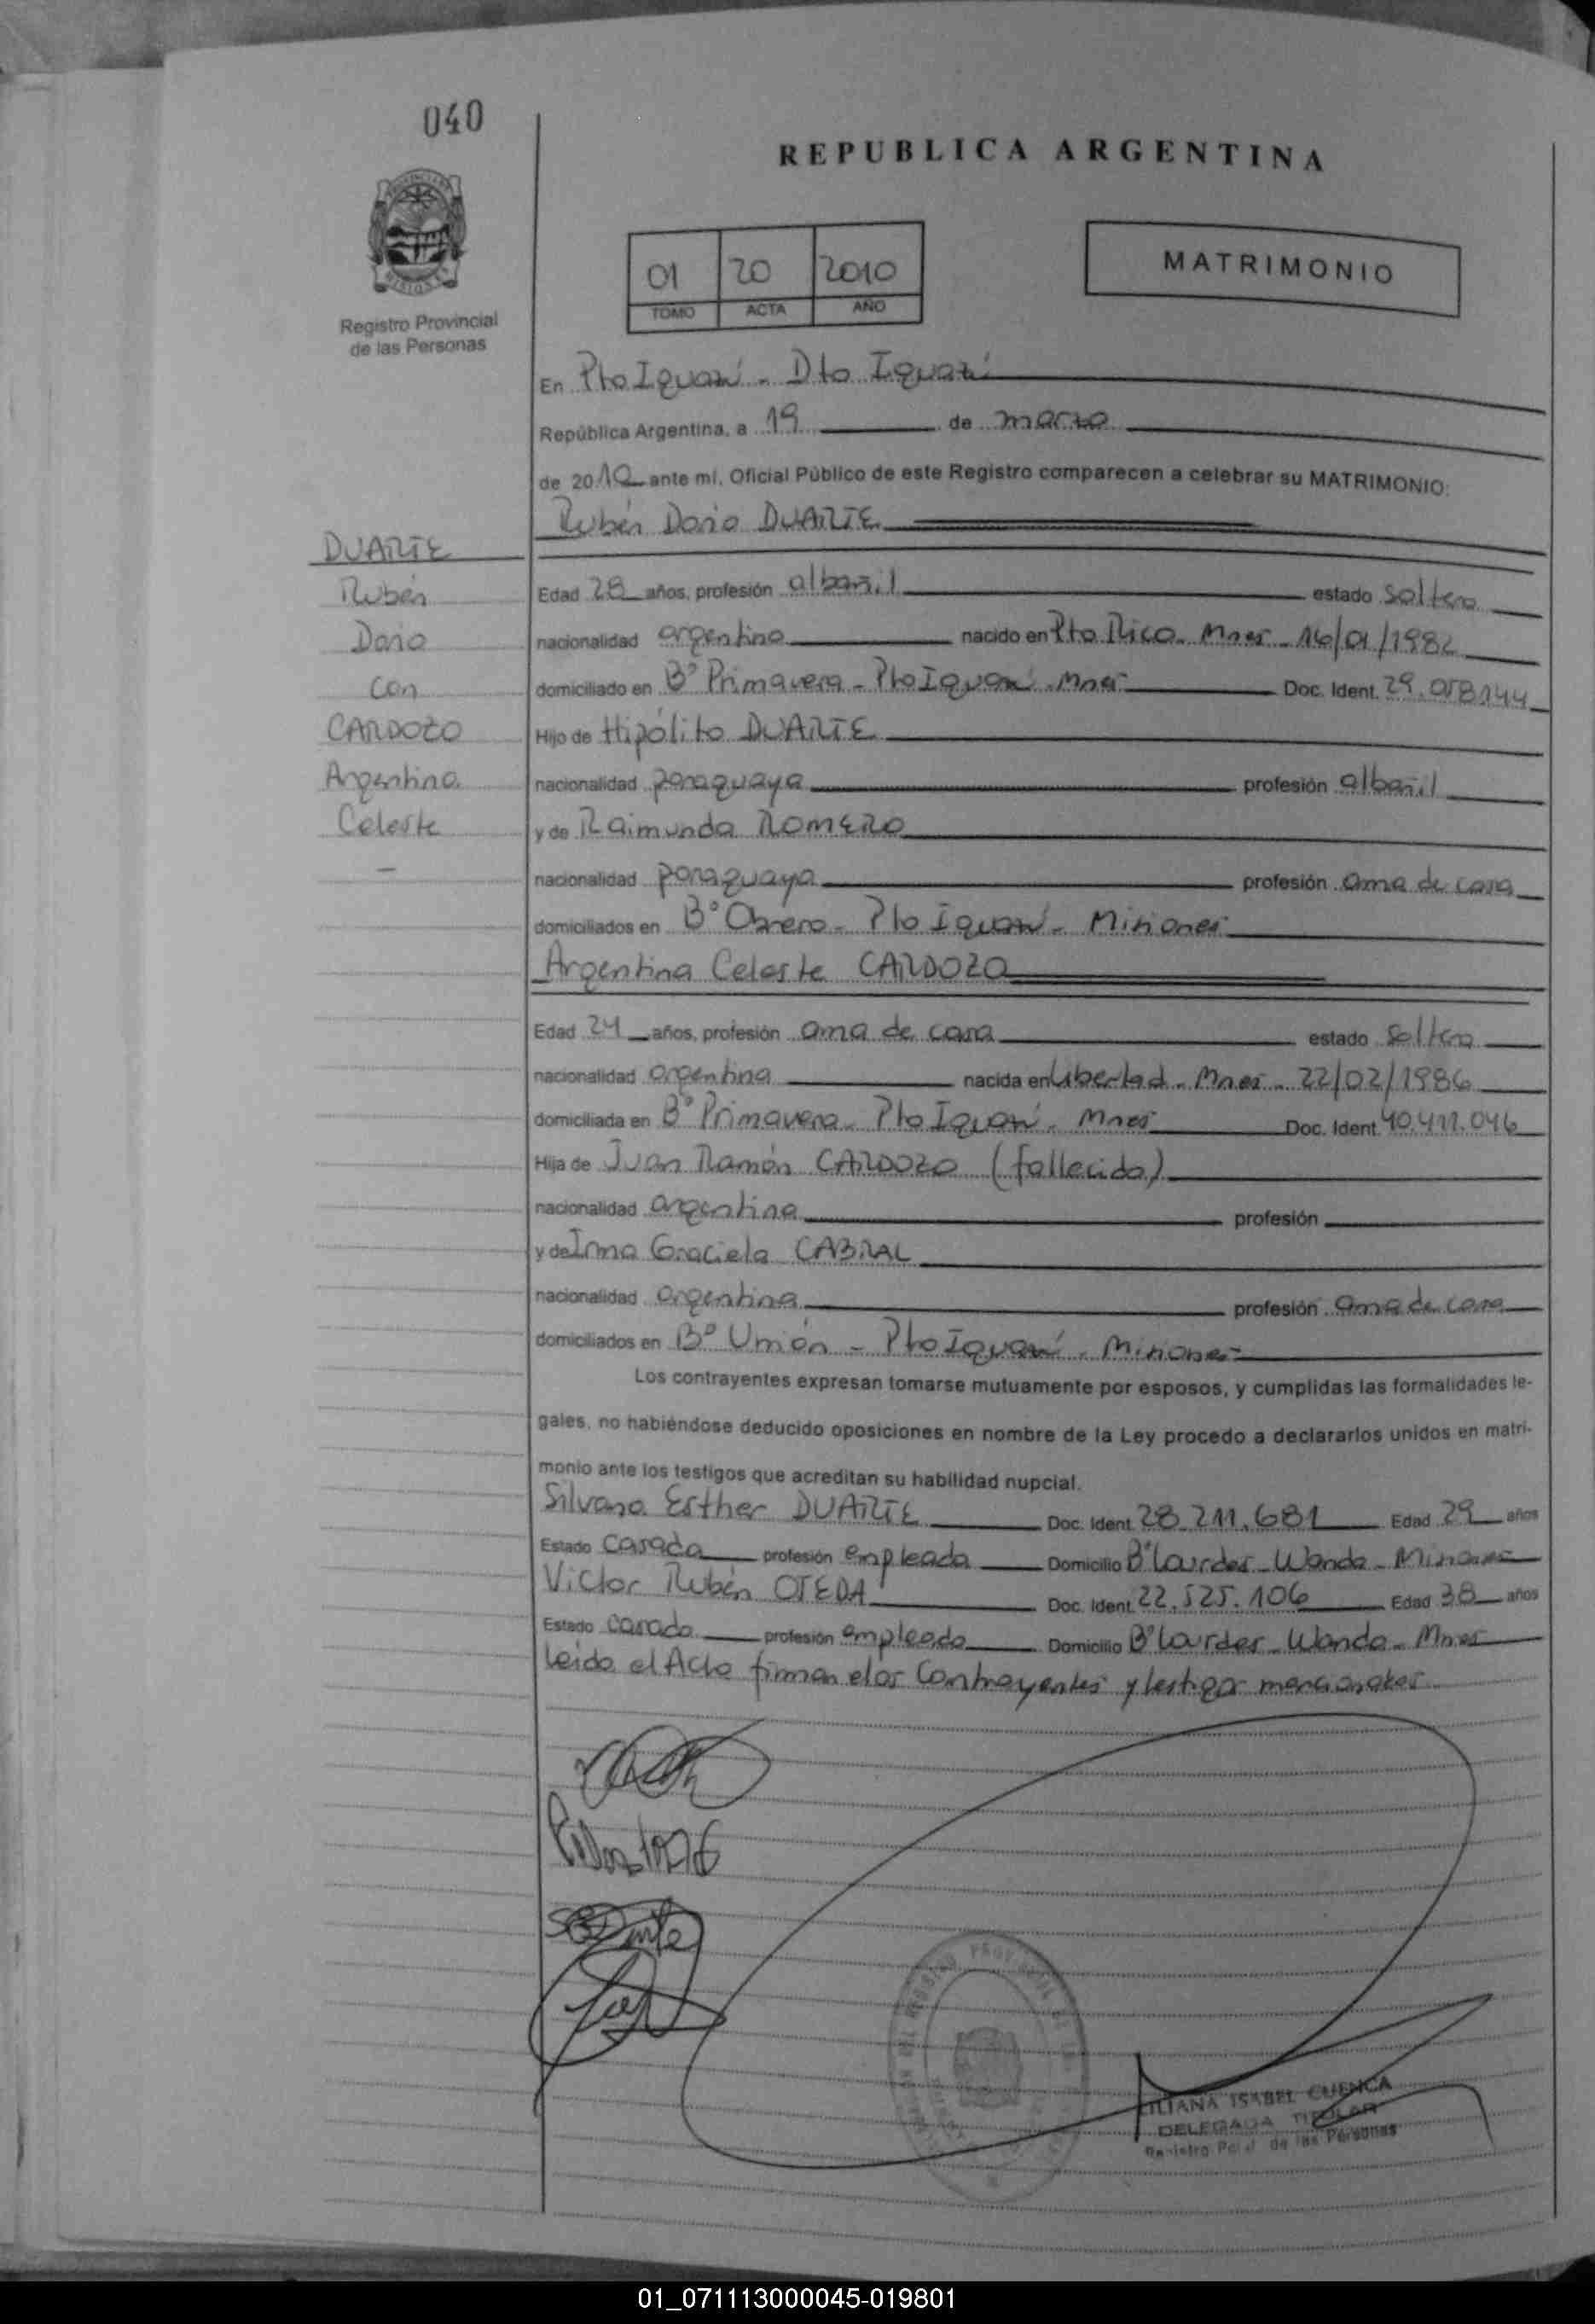 040
REPUBLICA ARGENTINA
Registro Provincial
de las Personas
01 20 2010
TOMO ACTA AÑO
MATRIMONIO
En Pto Iguazú - Dto Iguazú
República Argentina, a 19 de marzo
de 2010 ante mí, Oficial Público de este Registro comparecen a celebrar su MATRIMONIO:
Rubén Dario DUARTE
DUARTE
Rubén
Dario
con
CARDOZO
Argentina
Celeste
-
Edad 28 años, profesión albañil estado soltero
nacionalidad argentina nacido en Pto Rico - Mnes - 16/01/1982
domiciliado en Bº Primavera - Pto Iguazú - Mnes Doc. Ident. 29.058.144
Hijo de Hipólito DUARTE
nacionalidad paraguaya profesión albañil
y de Raimunda ROMERO
nacionalidad paraguaya profesión ama de casa
domiciliados en Bº Obrero - Pto Iguazú - Misiones
Argentina Celeste CARDOZO
Edad 24 años, profesión ama de casa estado soltera
nacionalidad argentina nacida en Libertad - Mnes - 22/02/1986
domiciliada en Bº Primavera - Pto Iguazú - Mnes Doc. Ident. 40.411.046
Hija de Juan Ramón CARDOZO (fallecido)
nacionalidad argentina profesión
y de Irma Graciela CABRAL
nacionalidad argentina profesión ama de casa
domiciliados en Bº Unión - Pto Iguazú - Misiones
Los contrayentes expresan tomarse mutuamente por esposos, y cumplidas las formalidades le-
gales, no habiéndose deducido oposiciones en nombre de la Ley procedo a declararlos unidos en matri-
monio ante los testigos que acreditan su habilidad nupcial.
Silvana Esther DUARTE Doc. Ident. 28.211.681 Edad 29 años
Estado casada profesión empleada Domicilio Bº Lourdes - Wanda - Misiones
Victor Rubén OJEDA Doc. Ident. 22.525.106 Edad 38 años
Estado casado profesión empleado Domicilio Bº Lourdes - Wanda - Mnes
Leido el Acta firman los Contrayentes y testigos mencionados
LILIANA ISABEL CUENCA
DELEGADA TITULAR
Registro Pcial. de las Personas
01_071113000045-019801